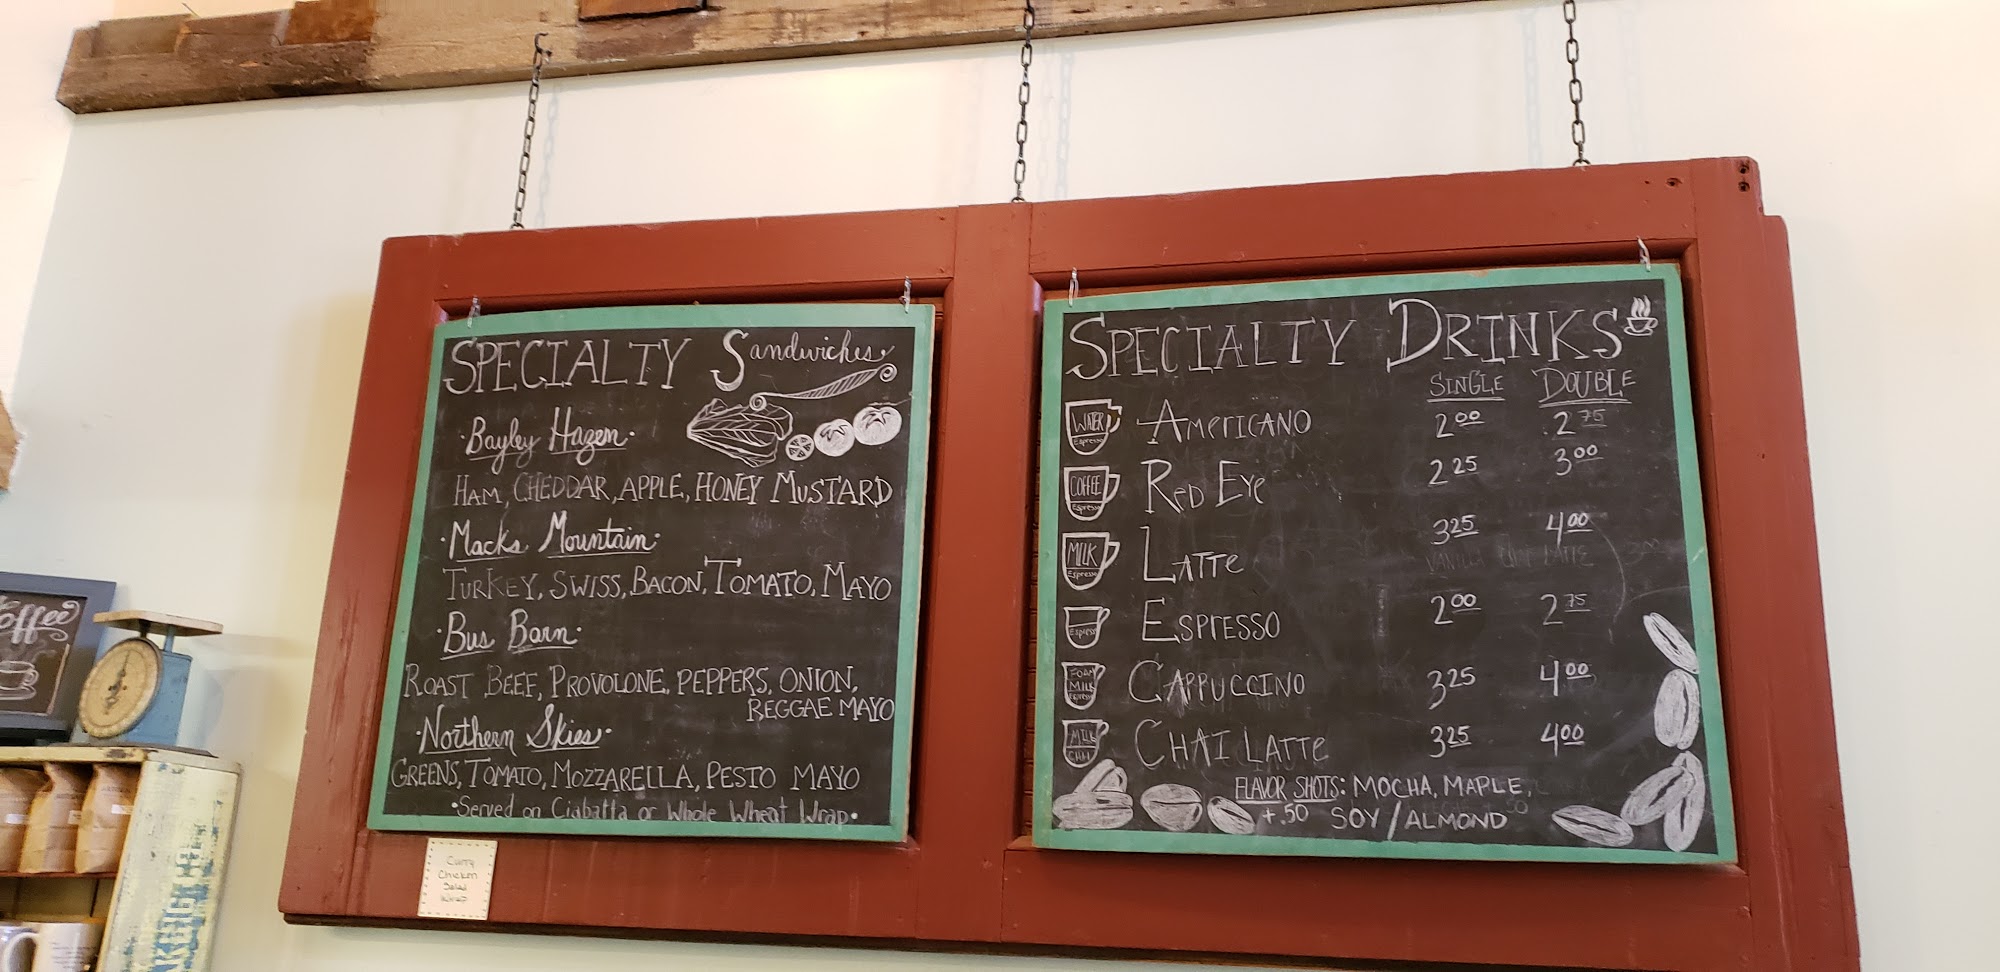 SPECIALTY Sandwiches
·Bayley Hazen·
HAM, CHEDDAR, APPLE, HONEY MUSTARD
·Macks Mountain·
TURKEY, SWISS, BACON, TOMATO, MAYO
·Bus Barn·
ROAST BEEF, PROVOLONE, PEPPERS, ONION,
REGGAE MAYO
·Northern Skies·
GREENS, TOMATO, MOZZARELLA, PESTO MAYO
·Served on Ciabatta or Whole Wheat Wrap·
Curry
Chicken
Salad
Wrap
SPECIALTY DRINKS
SINGLE DOUBLE
WATER
Espresso
AMERICANO 2.00 2.75
COFFEE
Espresso
RED EYE 2.25 3.00
MILK
Espresso
LATTE 3.25 4.00
VANILLA CHAI LATTE
Espresso
ESPRESSO 2.00 2.75
FOAM
MILK
Espresso
CAPPUCCINO 3.25 4.00
MILK
CHAI
CHAI LATTE 3.25 4.00
FLAVOR SHOTS: MOCHA, MAPLE,
+.50 SOY/ALMOND
offee